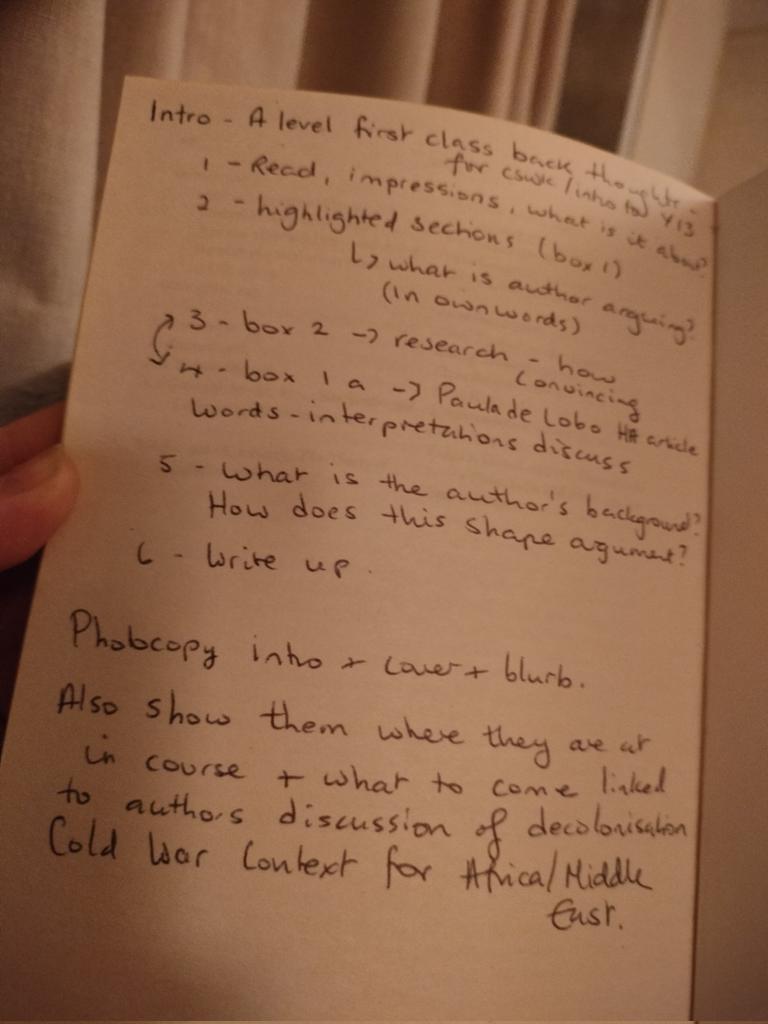 Intro - A level first class back thoughts -
for cswk/intro to Y13
1 - Read, impressions, what is it about?
2 - highlighted sections (box 1)
↳ what is author arguing?
(in own words)
3 - box 2 → research - how
convincing
4 - box 1 a → Paula de Lobo HA article
words - interpretations discuss
5 - what is the author's background?
How does this shape argument?
6 - Write up.
Photocopy intro + cover + blurb.
Also show them where they are at
in course + what to come linked
to authors discussion of decolonisation
Cold War Context for Africa/Middle
East.